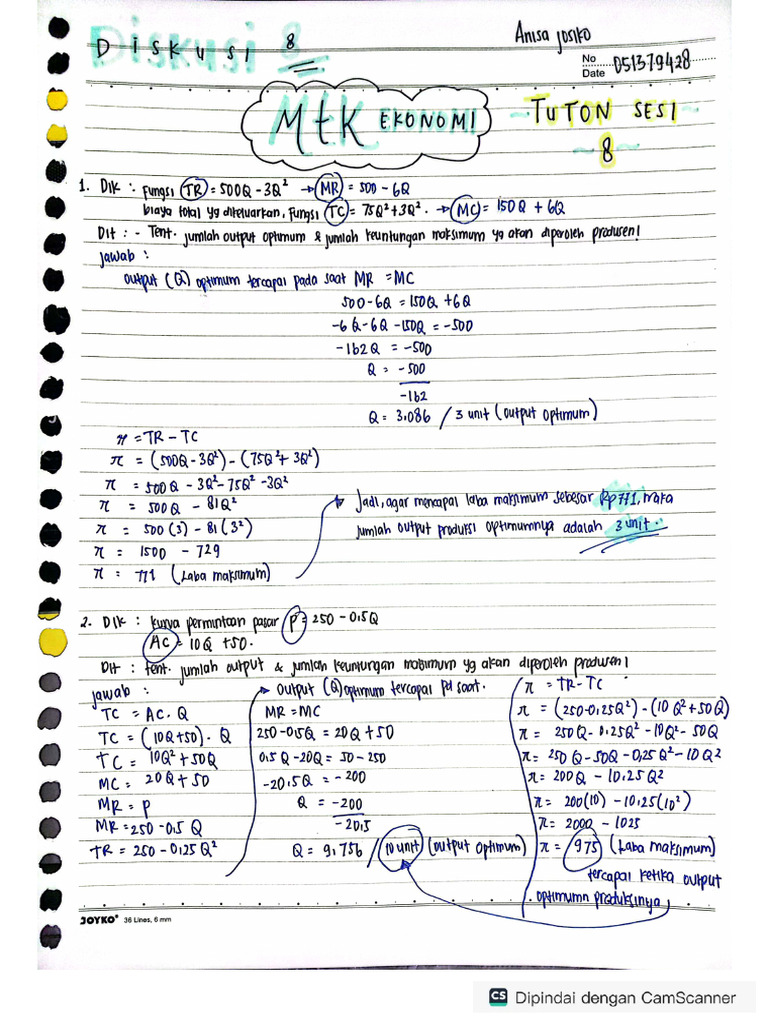 Diskusi 8
Anisa Josiko
No
Date
051379428
MtK EKONOMI
TUTON SESI
8
1. Dik : Fungsi TR = 500Q - 3Q² → MR = 500 - 6Q
biaya total yg dikeluarkan, fungsi TC = 75Q² + 3Q². → MC = 150Q + 6Q
Dit : - Tent. jumlah output optimum & jumlah keuntungan maksimum yg akan diperoleh produsen!
jawab :
output (Q) optimum tercapai pada saat MR = MC
500 - 6Q = 150Q + 6Q
-6Q - 6Q - 150Q = -500
-162Q = -500
Q = -500
-162
Q = 3.086 / 3 unit (output optimum)
π = TR - TC
π = (500Q - 3Q²) - (75Q² + 3Q²)
π = 500Q - 3Q² - 75Q² - 3Q²
π = 500Q - 81Q²
π = 500(3) - 81(3²)
π = 1500 - 729
π = 771 (Laba maksimum)
Jadi, agar mencapai laba maksimum sebesar Rp771, maka
jumlah output produksi optimumnya adalah 3 unit.
2. Dik : kurva permintaan pasar P = 250 - 0.5Q
AC = 10Q + 50.
Dit : tent. jumlah output & jumlah keuntungan maksimum yg akan diperoleh produsen!
jawab :
TC = AC . Q
TC = (10Q + 50) . Q
TC = 10Q² + 50Q
MC = 20Q + 50
MR = P
MR = 250 - 0.5 Q
TR = 250 - 0.25 Q²
output (Q) optimum tercapai pd saat.
MR = MC
250 - 0.5Q = 20Q + 50
0.5Q - 20Q = 50 - 250
-20.5Q = -200
Q = -200
-20.5
Q = 9.756 / 10 unit (output optimum)
π = TR - TC
π = (250 - 0.25Q²) - (10Q² + 50Q)
π = 250Q - 0.25Q² - 10Q² - 50Q
π = 250Q - 50Q - 0,25Q² - 10Q²
π = 200Q - 10.25Q²
π = 200(10) - 10,25(10²)
π = 2000 - 1025
π = 975 (Laba maksimum)
tercapai ketika output
optimumn produksinya
JOYKO® 36 Lines, 6 mm
CS Dipindai dengan CamScanner